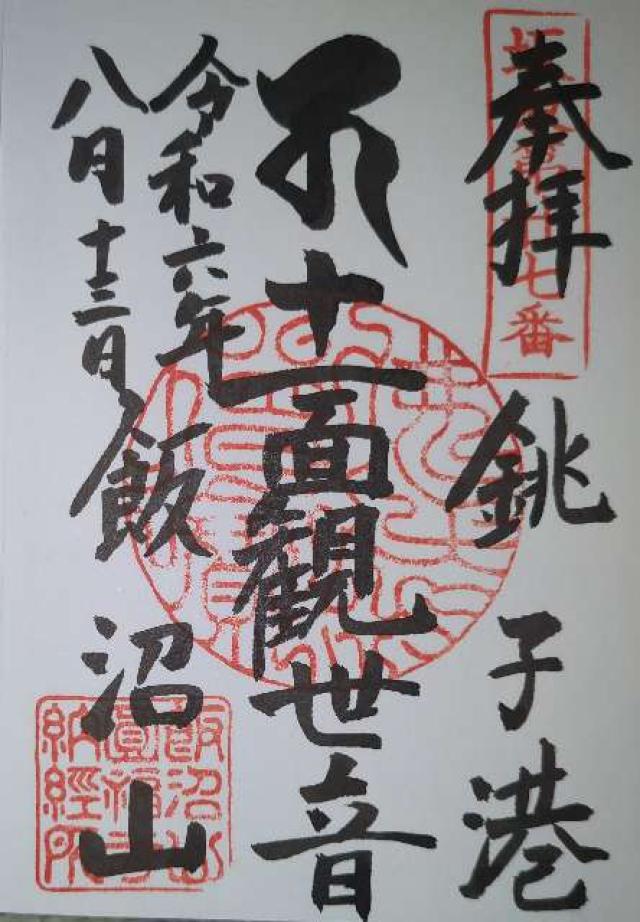 奉拝 銚子港
十一面観世音
令和六年 飯沼山
八月十三日
坂東第廿七番
飯沼山
圓福寺
納経所